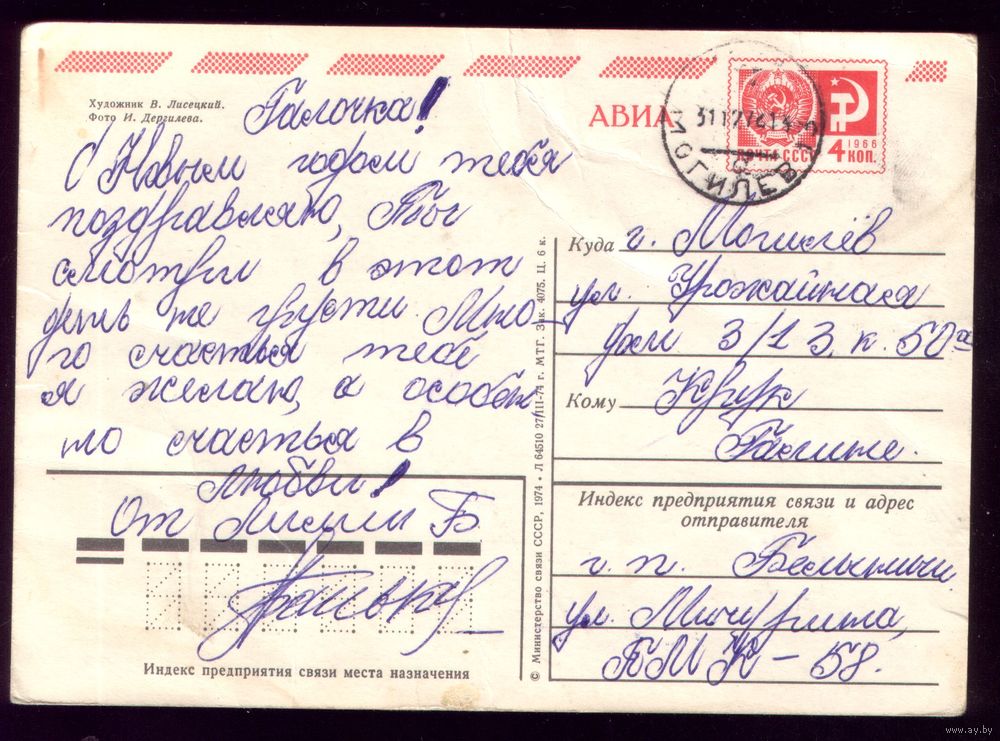 Художник В. Лисецкий.
Фото И. Дергилева.
Галочка!
С Новым годом тебя
поздравляю, Ты
смотри в этот
день не грусти. Мно-
го счастья тебе
я желаю, а особен
но счастья в
любви!
От Лилии Б.
Индекс предприятия связи места назначения
© Министерство связи СССР, 1974 • Л 64510 27/III-74 г. МТГ. Зак. 4075. Ц. 6 к.
АВИА
31127413
МОГИЛЕВ
ПОЧТА СССР
1966
4 КОП.
Куда г. Могилёв
ул. Урожайная
дом 3/13, к. 50а
Кому Крук
Галине.
Индекс предприятия связи и адрес
отправителя
г. п. Белыничи
ул. Мичурина,
ПМК-58.
www.ay.by